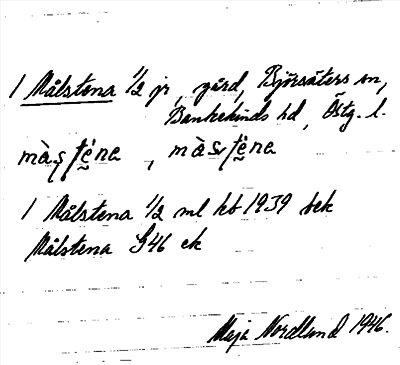 1 Målstena ½ jr, gård, Björsäters sn,
Bankekinds hd, Östg. l.
1 Målstena ½ ml kb 1939 bek
Målstena G46 ek
Maja Nordlund 1946.